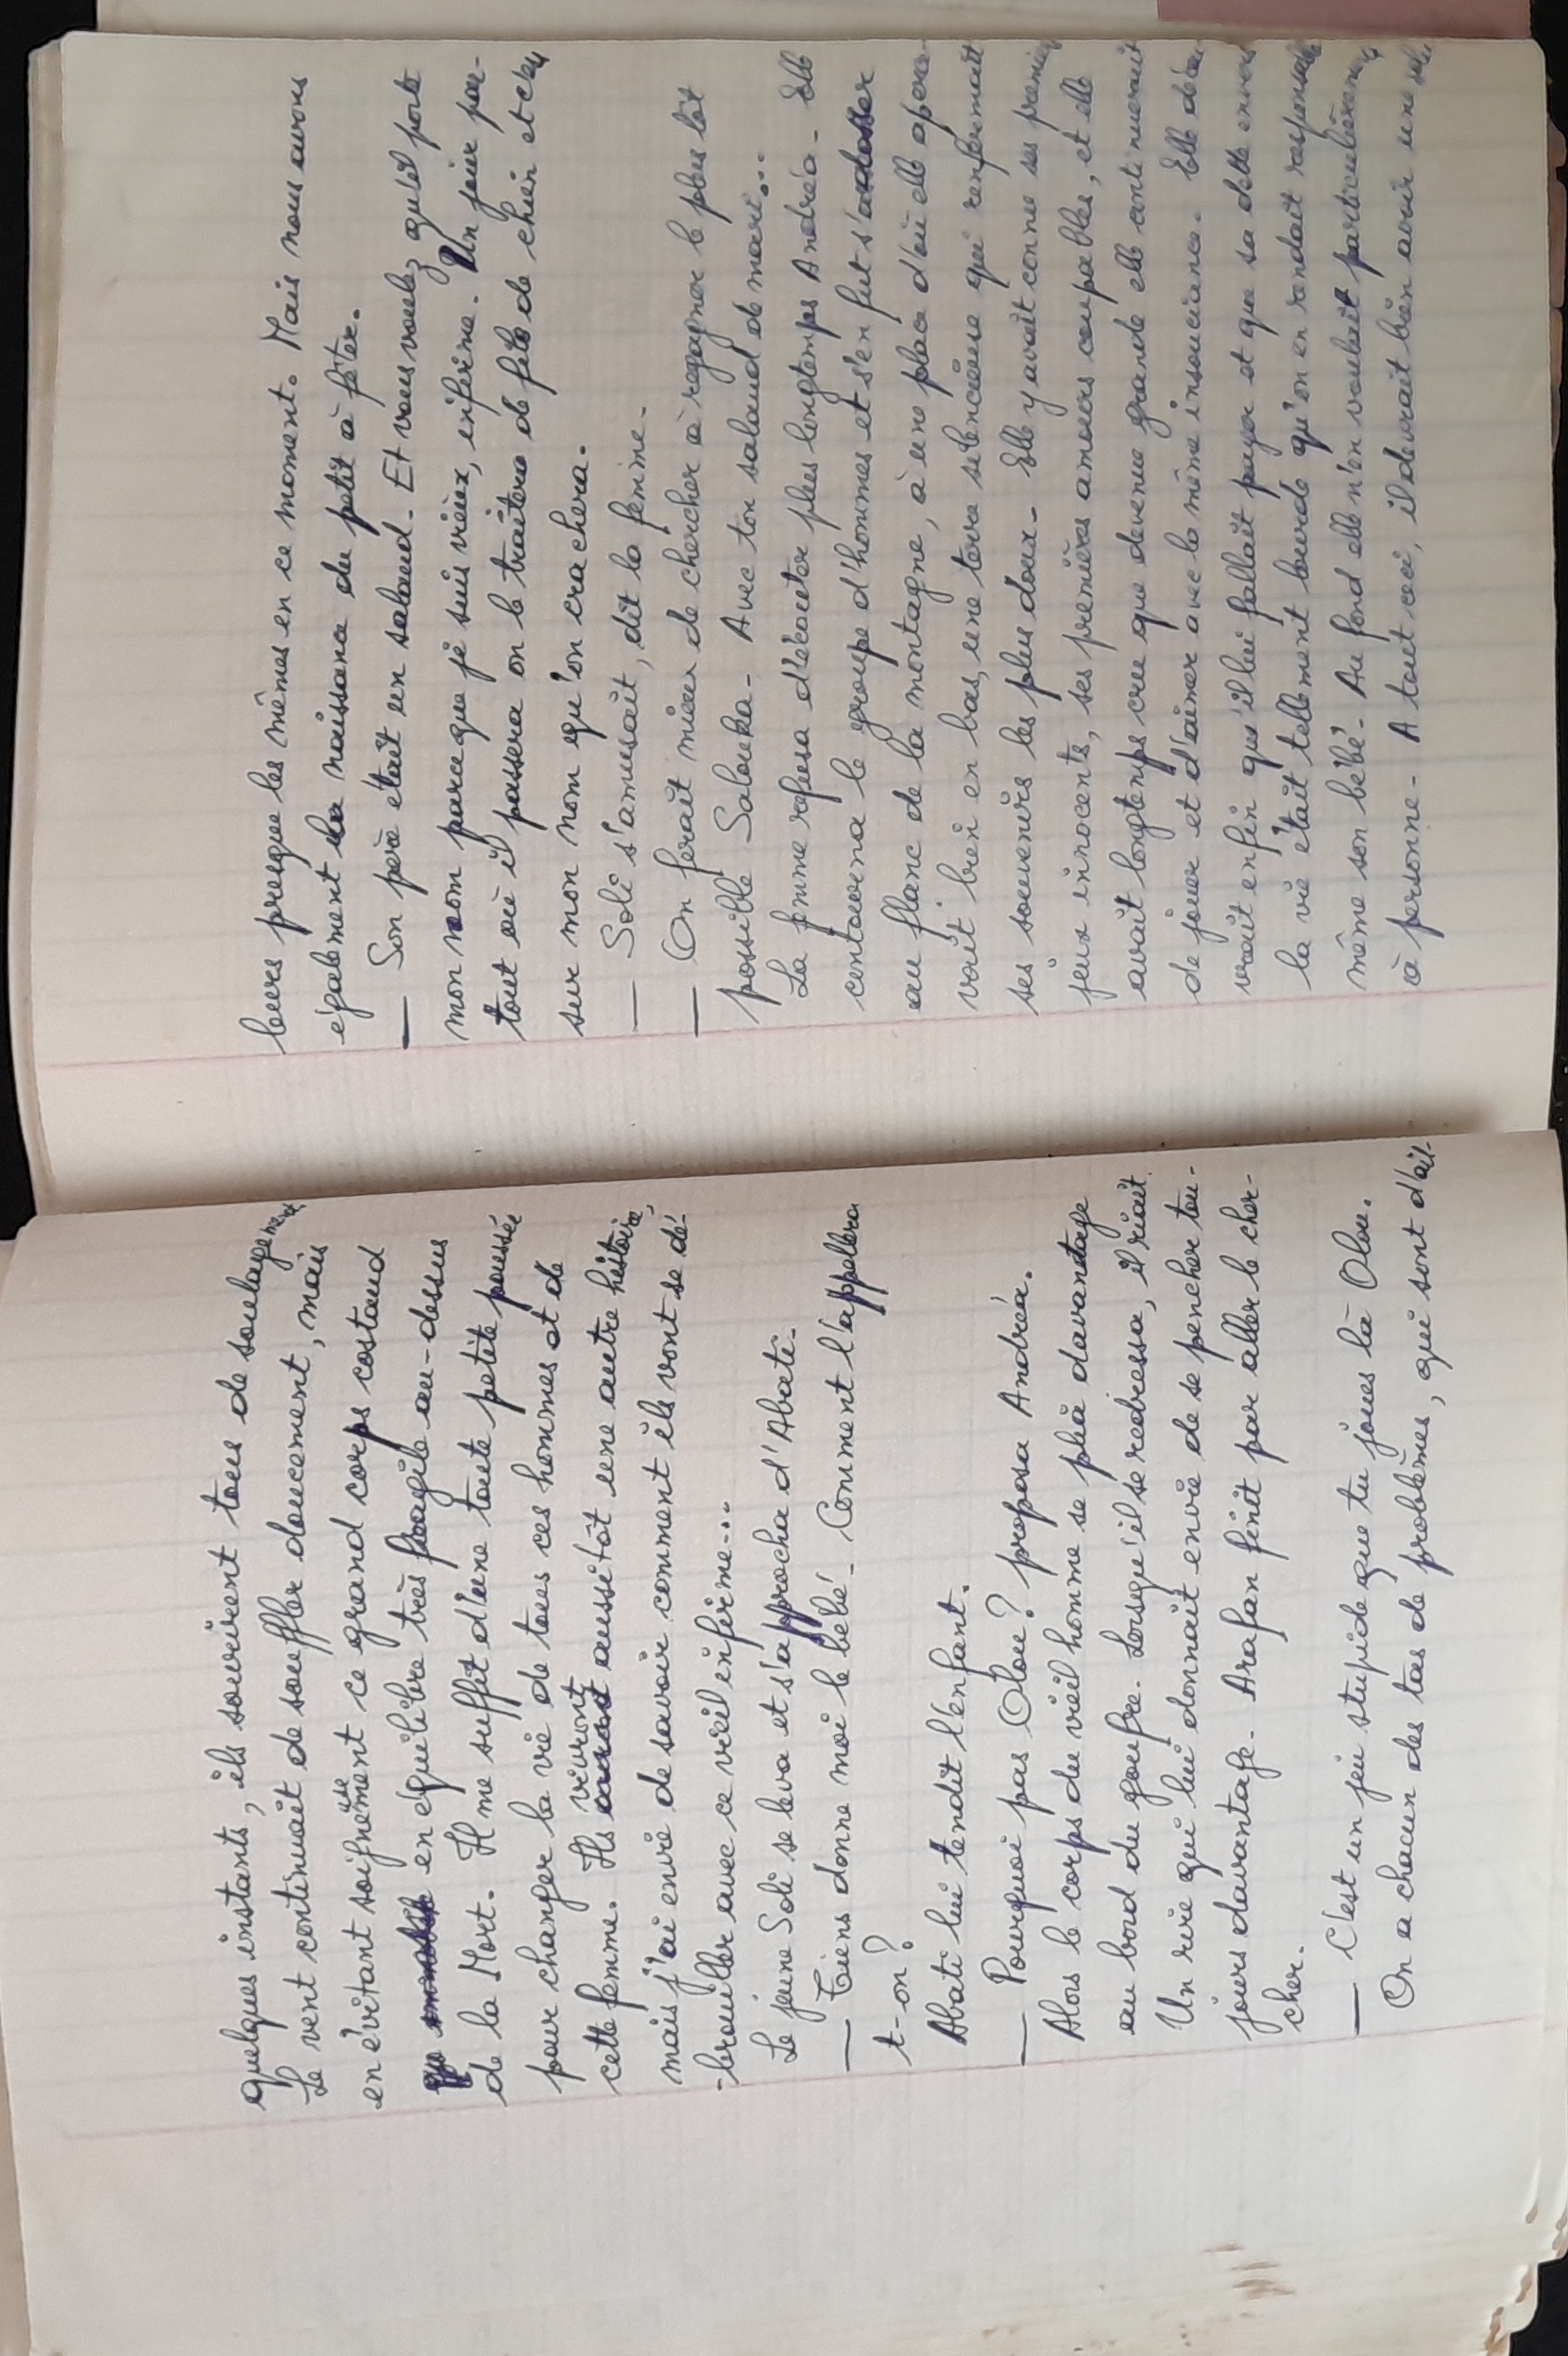 quelques instants, ils sourirent tous de soulagement
Le vent continuait de souffler doucement, mais
en évitant soigneusement ce grand corps costaud
en équilibre très fragile au-dessus
de la Mort. Il me suffit d'une toute petite poussée
pour changer la vie de tous ces hommes et de
cette femme. Ils vivront aussitôt une autre histoire,
mais j'ai envie de savoir comment ils vont se dé-
-brouiller avec ce vieil infirme...
Le jeune Soli se leva et s'approcha d'Abati-
— Tiens donne moi le bébé - Comment l'appellera
t-on?
Abati lui tendit l'enfant.
— Pourquoi pas Olou? proposa Andréa.
Alors le corps du vieil homme se plia davantage
au bord du goufre. Lorsqu'il se redressa, il riait
Un rire qui lui donnait envie de se pencher tou-
jours davantage - Arafan finit par aller le cher-
cher.
— C'est un jeu stupide que tu joues là Olou.
On a chacun des tas de problèmes, qui sont d'ail-
leurs presque les mêmes en ce moment. Mais nous avons
également la naissance du petit à fêter.
— Son père était un salaud - Et vous voulez qu'il porte
mon nom parce que je suis vieux, infirme - Un jour par-
tout où il passera on le traitera de fils de chien et c'est
sur mon nom qu'on crachera.
— Soli s'amusait, dit la femme -
— On ferait mieux de chercher à regagner le plus tôt
possible Salouka - Avec ton salaud de mari...
La femme refusa d'écouter plus longtemps Andréa - Elle
contourna le groupe d'hommes et s'en fut s'adosser
au flanc de la montagne, à une place d'où elle aperce-
vait bien en bas, une terre silencieuse qui renfermait
ses souvenirs les plus doux - Elle y avait connu ses premiers
jeux innocents, ses premières amours coupables, et elle
avait longtemps cru que devenue grande elle continuerait
de jouer et d'aimer avec la même insouciance - Elle décou-
vrait enfin qu'il lui fallait payer et que sa dette envers
la vie était tellement lourde qu'on en rendait responsable
même son bébé - Au fond elle n'en voulait particulièrement
à personne - A tout ceci, il devrait bien avoir une